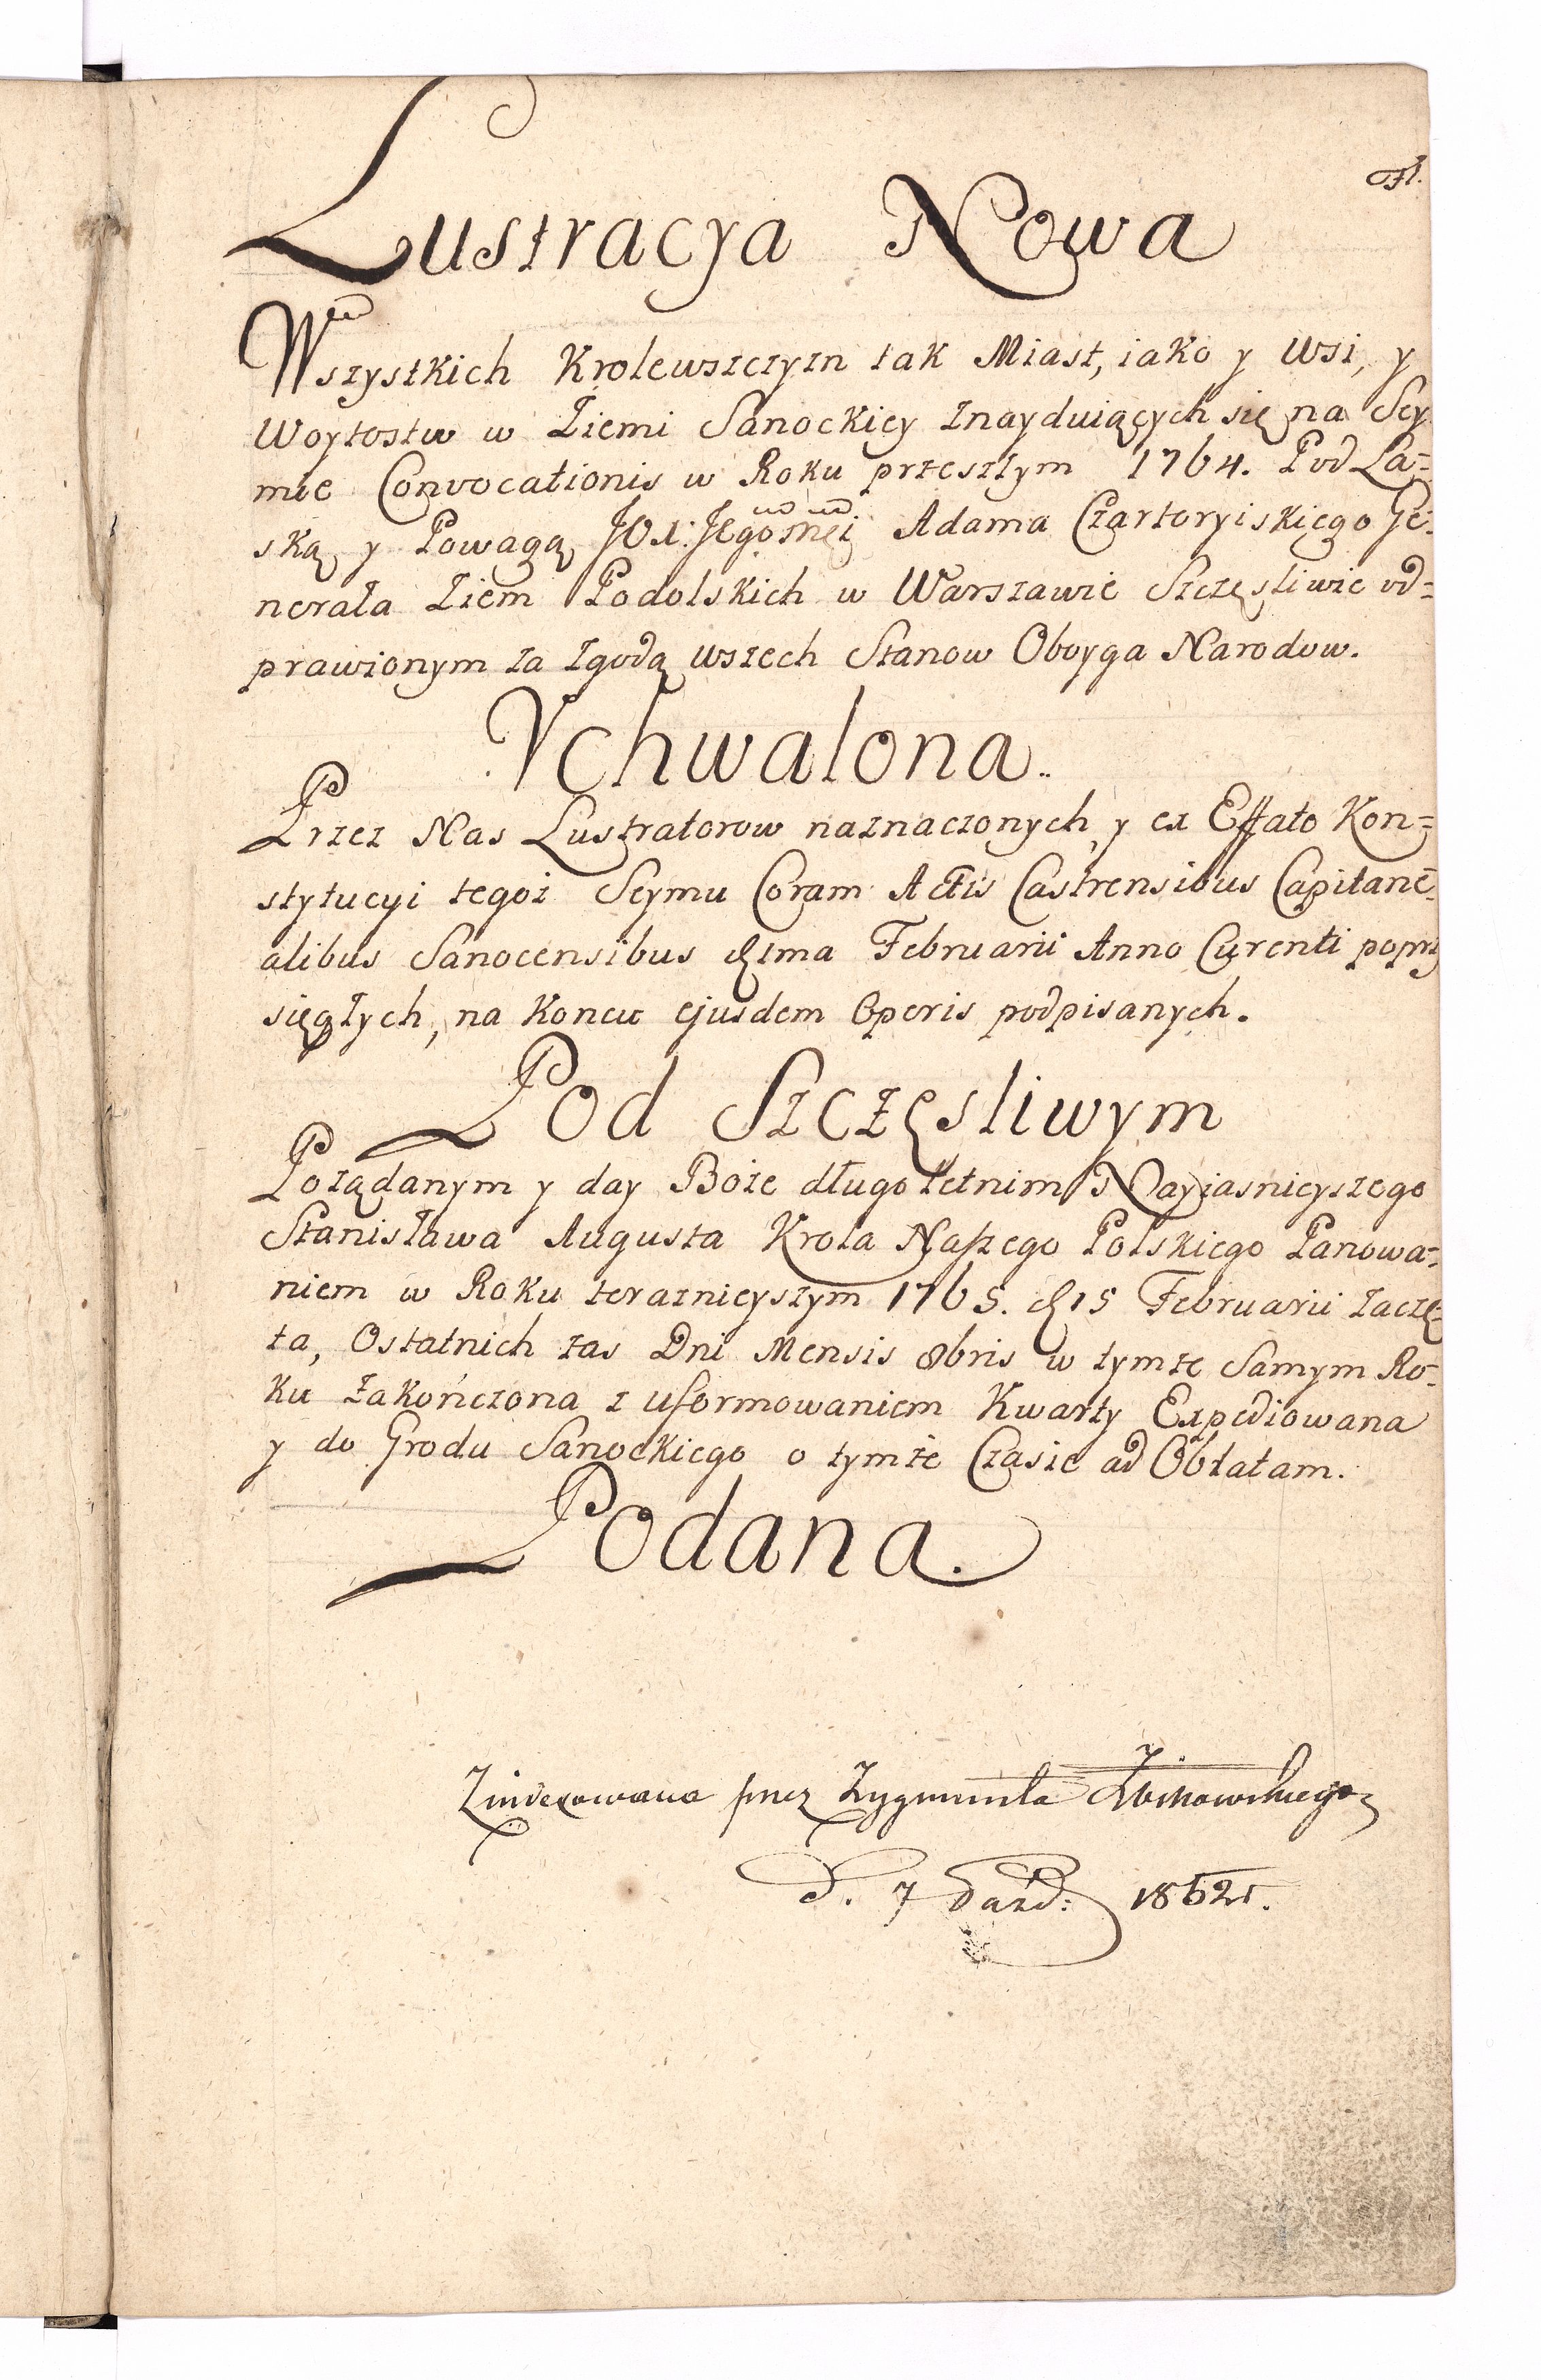 Lustracya Nowa
Wszystkich Krolewszczyzn tak Miast, iako y Wsi, y
Woytostw w Ziemi Sanockiey znayduiących się na Sey
mie Convocationis w Roku przeszłym 1764. Pod La=
ską y Powagą JOX: Jegomći Adama Czartoryiskiego Ge=
nerała Ziem Podolskich w Warszawie Szczęsliwie od=
prawionym za zgodą wszech Stanow Oboyga Narodow.
Vchwalona..
Przez Nas Lustratorow naznaczonych, y ex Effato Kon=
stytucyi tegoż Seymu Coram Actis Castrensibus Capitane=
alibus Sanocensibus 1ma Februarii Anno Curenti poprzy
sięgłych, na Koncu ejusdem Operis podpisanych.
Pod Szczęsliwym
Pożądanym y day Boże długoletnim Nayiasnieyszego
Stanisława Augusta Krola Naszego Polskiego Panowa=
niem w Roku teraznieyszym 1765. d 15 Februarii zaczę=
ta, Ostatnich zas Dni Mensis 8bris w tymże Samym Ro=
ku zakończona z uformowaniem Kwarty Expediowana
y do Grodu Sanockiego o tymże Czasie ad Oblatam.
Podana.
Zindexowana przez Zygmunta
d. 7 Paźd: 1862r.